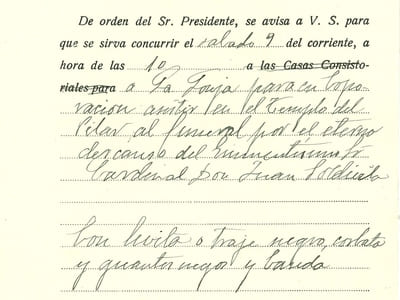 De orden del Sr. Presidente, se avisa a V. S. para
que se sirva concurrir el sabado 9 del corriente, a
hora de las 10 a las Casas Consisto-
riales para a La Lonja para en Corpo-
racion asistir en el Templo del
Pilar al funeral por el eterno
descanso del Eminentisimo Sr
Cardenal Don Juan Soldevila
Con levita o traje negro, corbata
y guantes negros y banda